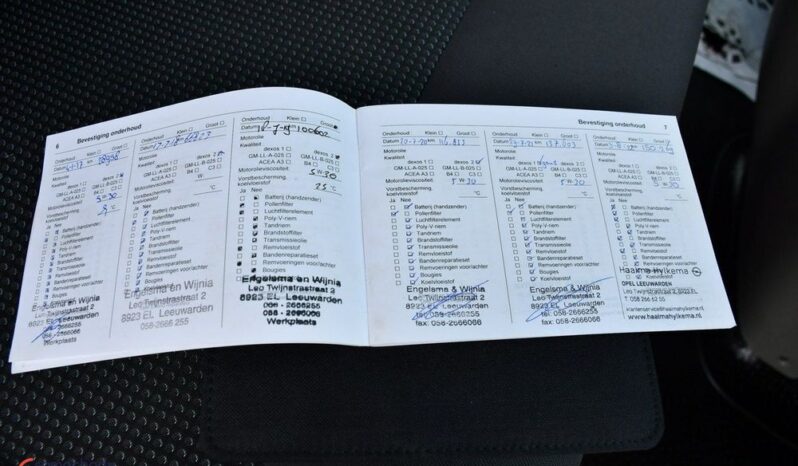 6 Bevestiging onderhoud
Onderhoud Klein Groot
Motorolie
Kwaliteit
dexos 1 dexos 2
GM-LL-A-025 GM-LL-B-025
ACEA A3 B4 C3
Motorolieviscositeit 5W30
Vorstbescherming, koelvloeistof °C
Ja Nee
Batterij (handzender)
Pollenfilter
Luchtfilterelement
Poly V-riem
Tandriem
Brandstoffilter
Transmissieolie
Remvloeistof
Bandenreparatieset
Remvoeringen voor/achter
Bougies
Engelsma en Wijnia
Leo Twijnstrastraat 2
8923 EL Leeuwarden
058-2666255
Onderhoud Klein Groot
Motorolie
Kwaliteit
dexos 1 dexos 2
GM-LL-A-025 GM-LL-B-025
ACEA A3 B4 C3
Motorolieviscositeit 5W30
Vorstbescherming, koelvloeistof °C
Ja Nee
Batterij (handzender)
Pollenfilter
Luchtfilterelement
Poly V-riem
Tandriem
Brandstoffilter
Transmissieolie
Remvloeistof
Bandenreparatieset
Remvoeringen voor/achter
Bougies
Engelsma en Wijnia
Leo Twijnstrastraat 2
8923 EL Leeuwarden
058-2666 255
Onderhoud Klein Groot
Datum km 100602
Motorolie
Kwaliteit
dexos 1 dexos 2
GM-LL-A-025 GM-LL-B-025
ACEA A3 B4 C3
Motorolieviscositeit 5W30
Vorstbescherming, koelvloeistof 25 °C
Ja Nee
Batterij (handzender)
Pollenfilter
Luchtfilterelement
Poly V-riem
Tandriem
Brandstoffilter
Transmissieolie
Remvloeistof
Bandenreparatieset
Remvoeringen voor/achter
Bougies
Engelsma en Wijnia
Leo Twijnstrastraat 2
8923 EL Leeuwarden
Werkplaats
Bevestiging onderhoud 7
Onderhoud Klein Groot
Datum 20-7-20 km
Motorolie
Kwaliteit
dexos 1 dexos 2
GM-LL-A-025 GM-LL-B-025
ACEA A3 B4 C3
Motorolieviscositeit 5W30
Vorstbescherming, koelvloeistof °C
Ja Nee
Batterij (handzender)
Pollenfilter
Luchtfilterelement
Poly V-riem
Tandriem
Brandstoffilter
Transmissieolie
Remvloeistof
Bandenreparatieset
Remvoeringen voor/achter
Bougies
Koelvloeistof
Engelsma & Wijnia
Leo Twijnstrastraat 2
8923 EL Leeuwarden
tel. 058-2666255
fax: 058-2666066
Onderhoud Klein Groot
Datum km 137.003
Motorolie
Kwaliteit
dexos 1 dexos 2
GM-LL-A-025 GM-LL-B-025
ACEA A3 B4 C3
Motorolieviscositeit 5W30
Vorstbescherming, koelvloeistof °C
Ja Nee
Batterij (handzender)
Pollenfilter
Luchtfilterelement
Poly V-riem
Tandriem
Brandstoffilter
Transmissieolie
Remvloeistof
Bandenreparatieset
Remvoeringen voor/achter
Bougies
Koelvloeistof
Engelsma & Wijnia
Leo Twijnstrastraat 2
8923 EL Leeuwarden
tel. 058-2666255
fax: 058-2666066
Onderhoud Klein Groot
Datum km
Motorolie
Kwaliteit
dexos 1 dexos 2
GM-LL-A-025 GM-LL-B-025
ACEA A3 B4 C3
Motorolieviscositeit 5W30
Vorstbescherming, koelvloeistof °C
Ja Nee
Batterij (handzender)
Pollenfilter
Luchtfilterelement
Poly V-riem
Tandriem
Brandstoffilter
Transmissieolie
Remvloeistof
Bandenreparatieset
Remvoeringen voor/achter
Bougies
Koelvloeistof
Haaima Hylkema
OPEL LEEUWARDEN
Leo Twijnstrastraat 2, 8923 EL
T 058 266 62 55
klantenservice@haaimahylkema.nl
www.haaimahylkema.nl